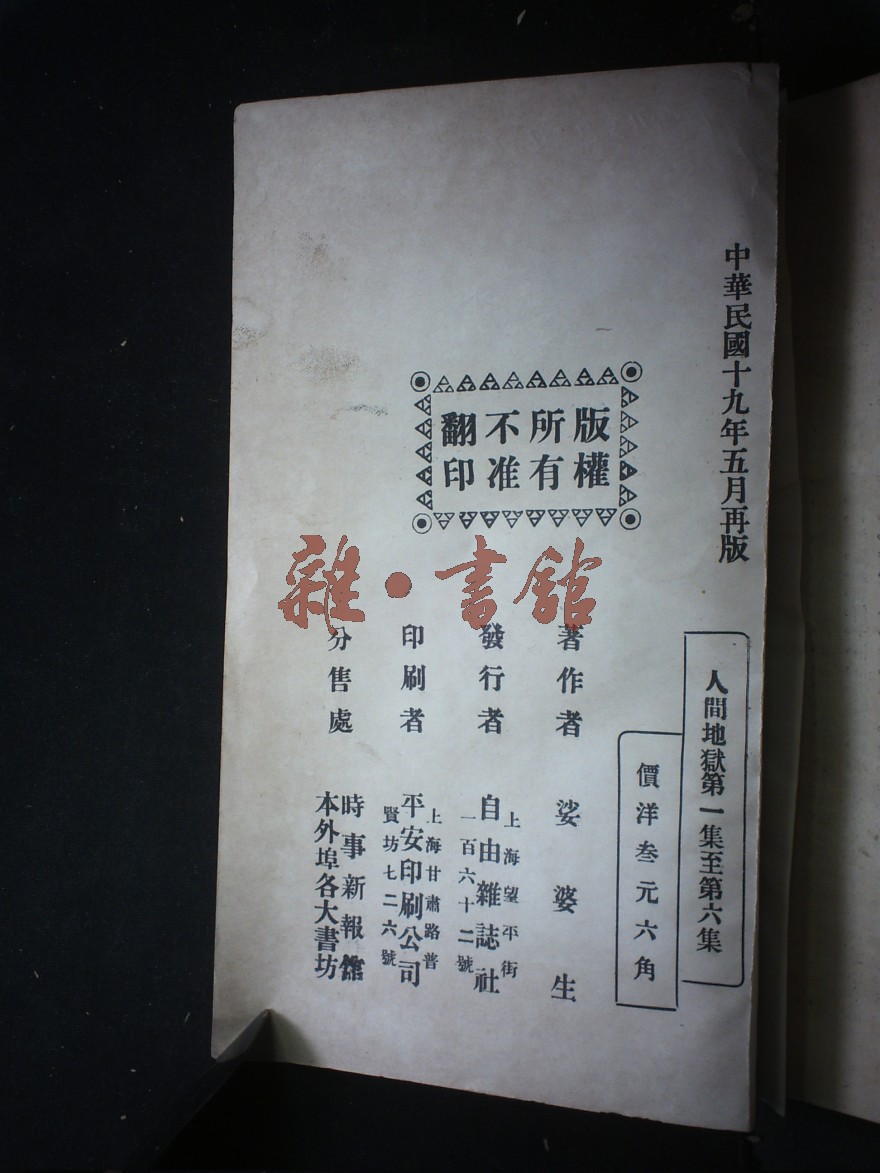 中華民國十九年五月再版
人間地獄第一集至第六集
價洋叁元六角
版權
所有
不准
翻印
著作者 娑婆生
發行者 自由雜誌社
上海望平街
一百六十二號
印刷者 平安印刷公司
上海甘肅路普
賢坊七二六號
分售處 時事新報館
本外埠各大書坊
雜·書館